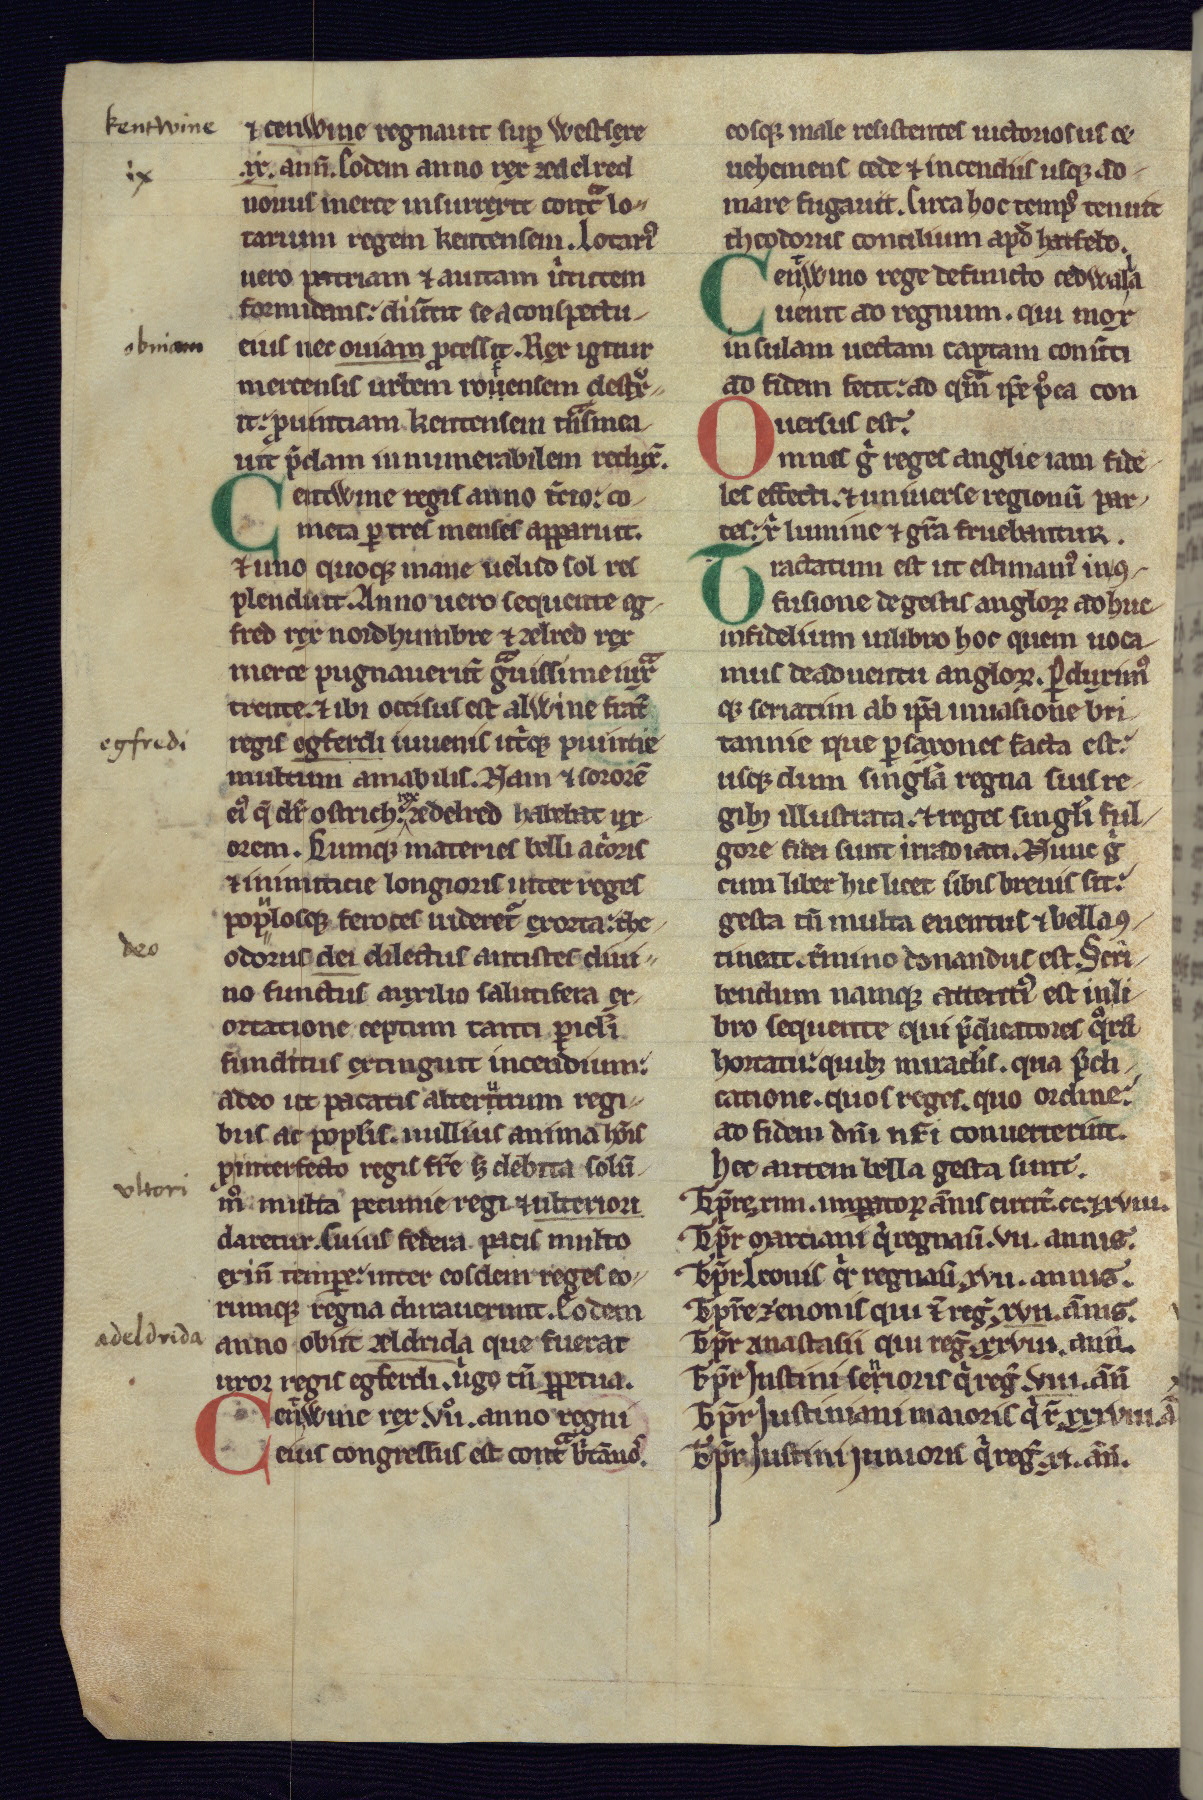 kentwine
ix
obuiam
egfredi
deo
ultori
adeldrida
⁊ cenwine regnauit sup westsexe
.ix. anñ. Eodem anno rex ædelred
nouus merce insurrexit cont̃ lo-
tarium regem kentensem. Lotari᷒
uero patriam ⁊ auitam ũtutem
formidans: diũtit se a conspectu
eius nec ouiam ꝓcessit. Rex igitur
mercensis urbem rouensem destr̃x-
it: ꝓuintiam kentensem t̃nsmea-
uit p̃dam innumerabilem redux̃.
Centwine regis anno t̃cio: co-
meta ꝑ tres menses apparuit.
⁊ uno quoqꝫ mane uelud sol res
plenduit. Anno uero sequente eg-
fred rex nordhumbre ⁊ ælred rex
merce pugnauerũt g̃uissime iux̃
trente. ⁊ ibi occisus est alwine frat̃
regis egferdi iuuenis ut̃qꝫ ꝓuintie
multum amabilis. Nam ⁊ sororẽ
ei᷒ q̃ dr̃ ostrich: rex ædelred habebat ux-
orem. Cumqꝫ materies belli ac̃oris
⁊ inimiticie longioris inter reges
poplosqꝫ feroces uideret᷑ exorta: the-
odorus dei dilectus antistes diui-
no functus auxilio salutifera ex-
ortatione ceptum tanti picl̃i
funditus extinguit incendium:
adeo ut pacatis alterutrum regi-
bus ac poplis. nullius anima hoĩs
p interfecto regis fr̃e sꝫ debita solũ-
m᷒ multa pecunie regi ⁊ ulteriori
daretur. Cuius federa pacis multo
exiñ tempe: inter eosdem reges eo-
rumqꝫ regna durauerunt. Eodem
anno obiit ældrida que fuerat
uxor regis egferdi. ũgo tñ ꝑpetua.
Cenwine rex vͦ. anno regni
eius congressus est cont̃ b̃tãnos.
eosqꝫ male resistentes uictoriosus ce
uehemens cede ⁊ incendiis usqꝫ ad
mare fugauit. Circa hoc temp᷒ tenuit
theodorus concilium apd̃ hatfeld.
Cenwino rege defuncto cedwala
uenit ad regnum. qui mox
insulam uectam captam conũti
ad fidem fecit: ad q̃m ip̃e p᷒ea con
uersus est.
Omnes g̃ reges anglie iam fide
les effecti. ⁊ uniuerse regionũ par-
tes: x̃ lumine ⁊ gr̃a fruebantur.
Tractatum est ut estimam᷒ in ꝯ-
fusione de gestis angloꝝ ad huc
infidelium in libro hoc quem uoca-
mus de aduentu angloꝝ. ꝑduxim᷒
qꝫ seriatim ab ip̃a inuasione bri
tannie que ꝑ saxones facta est:
usqꝫ dum singl̃a regna suis re-
gibꝫ illustrata. ⁊ reges singl̃i ful-
gore fidei sunt irradiati. Nunc g̃
cum liber hic licet sibis breuis sit:
gesta tñ multa euentus ⁊ bella ꝯ-
tineat. t̃mino donandus est. Scri-
bendum namqꝫ attenti᷒ est in li
bro sequente qui p̃dicatores q᷒ra
hortatu: quibꝫ miraclis. qua p̃di-
catione. quos reges. quo ordine:
ad fidem dñi nr̃i conuerterunt.
Hec autem bella gesta sunt.
Tp̃re .xiiii. impatoꝝ ãnis circit̃. cc. ⁊ xviii.
Tp̃r Marciani q̃ regnaũ. vii. annis.
Tp̃r Leonis q̃ regnaũ xvii. annis.
Tp̃re Zenonis qui ⁊ reg̃. xvii. ãnis.
Tp̃r Anastasii qui reg̃ .xxviii. anñ.
Tp̃r Justini senioris q̃ reg̃. viii. añ
Tp̃r Justiniani maioris q̃ r̃. xxxviii. ã
Tp̃r Justini Junioris q̃ reg̃. xi. añ.